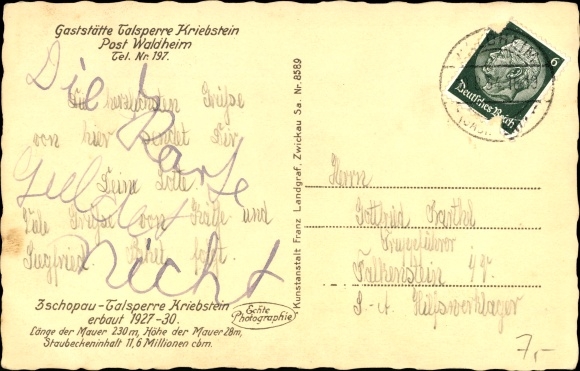 Gaststätte Talsperre Kriebstein
Post Waldheim
Tel. Nr. 197.
Die herzlichsten Grüße
von hier sendet Dir
Deine Lotte
Viele Grüße von Käthe und
Siegfried. folgt.
Die Karte
nicht
Zschopau-Talsperre Kriebstein
erbaut 1927-30.
Länge der Mauer 230m, Höhe der Mauer 28m,
Staubeckeninhalt 11,6 Millionen cbm.
Echte
Photographie
Kunstanstalt Franz Landgraf, Zwickau Sa. Nr. 8589
6
Deutsches Reich
Herrn
Gottfried Barthel
Truppführer
Falkenstein
S-A Hilfswerklager
7,-